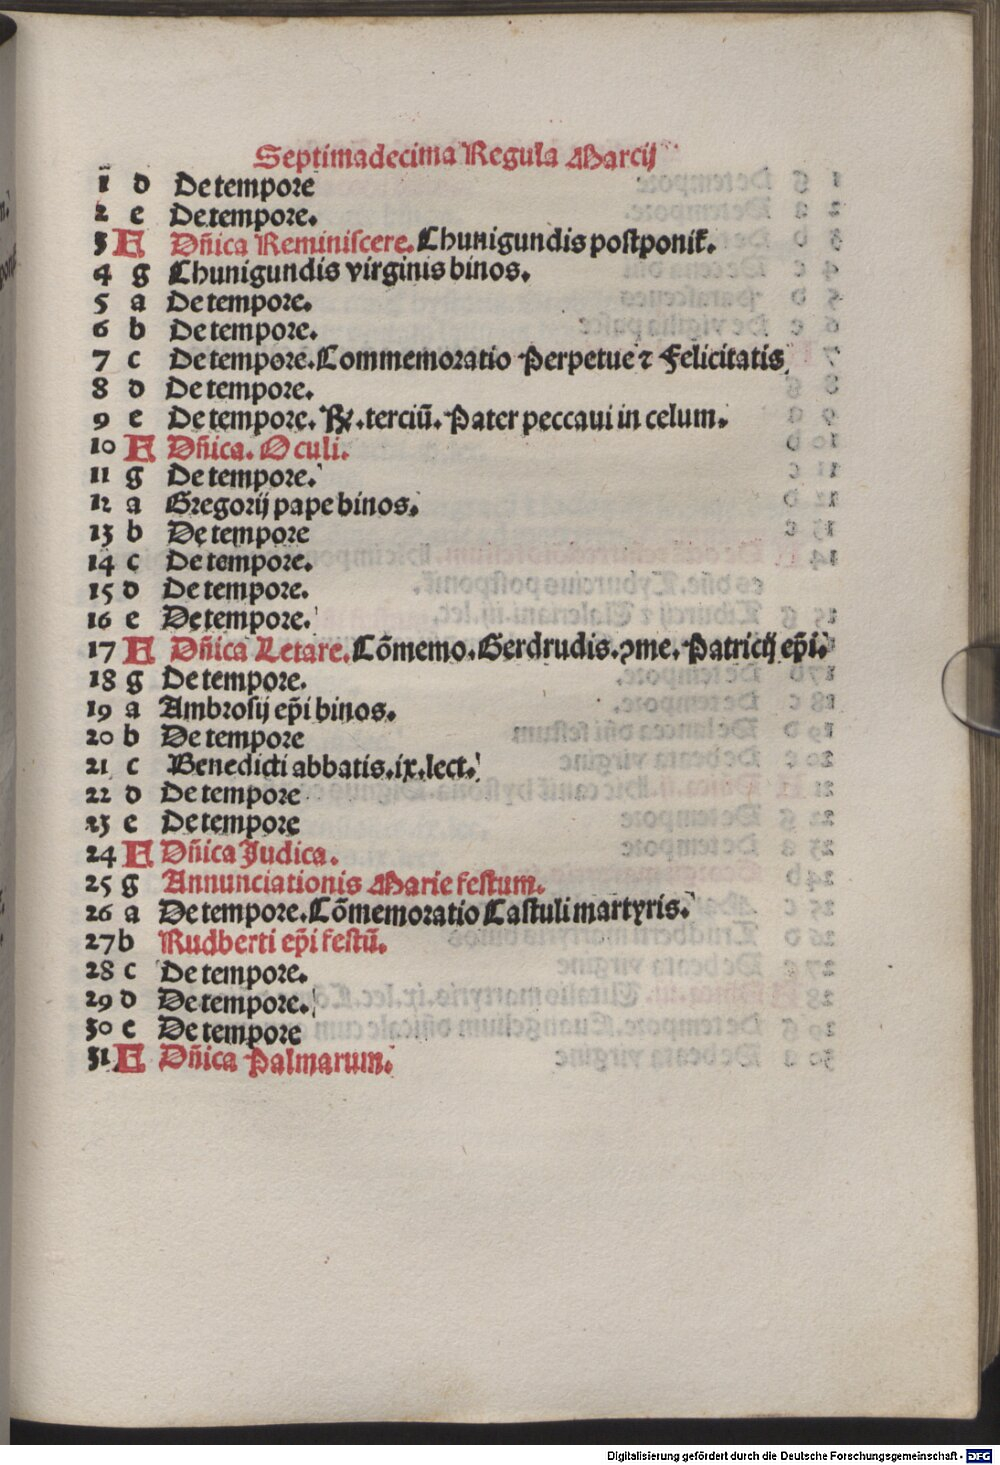 Septimadecima Regula Marcij
1 d De tempore
2 e De tempore.
3 F Dñica Reminiscere. Chunigundis postponit̃.
4 g Chunigundis virginis binos.
5 a De tempore.
6 b De tempore.
7 c De tempore. Commemoratio Perpetue ⁊ Felicitatis
8 d De tempore.
9 e De tempore. ℟. terciũ. Pater peccaui in celum.
10 F Dñica. Oculi.
11 g De tempore.
12 a Gregorij pape binos.
13 b De tempore
14 c De tempore.
15 d De tempore.
16 e De tempore.
17 F Dñica Letare. Cõmemo. Gerdrudis. ꝯme. Patricij ep̃i.
18 g De tempore.
19 a Ambrosij ep̃i binos.
20 b De tempore
21 c Benedicti abbatis. ix. lect.
22 d De tempore
23 e De tempore
24 F Dñica Judica.
25 g Annunciationis Marie festum.
26 a De tempore. Cõmemoratio Castuli martyris.
27 b Rudberti ep̃i festũ.
28 c De tempore.
29 d De tempore.
30 e De tempore
31 F Dñica Palmarum.
Digitalisierung gefördert durch die Deutsche Forschungsgemeinschaft - DFG